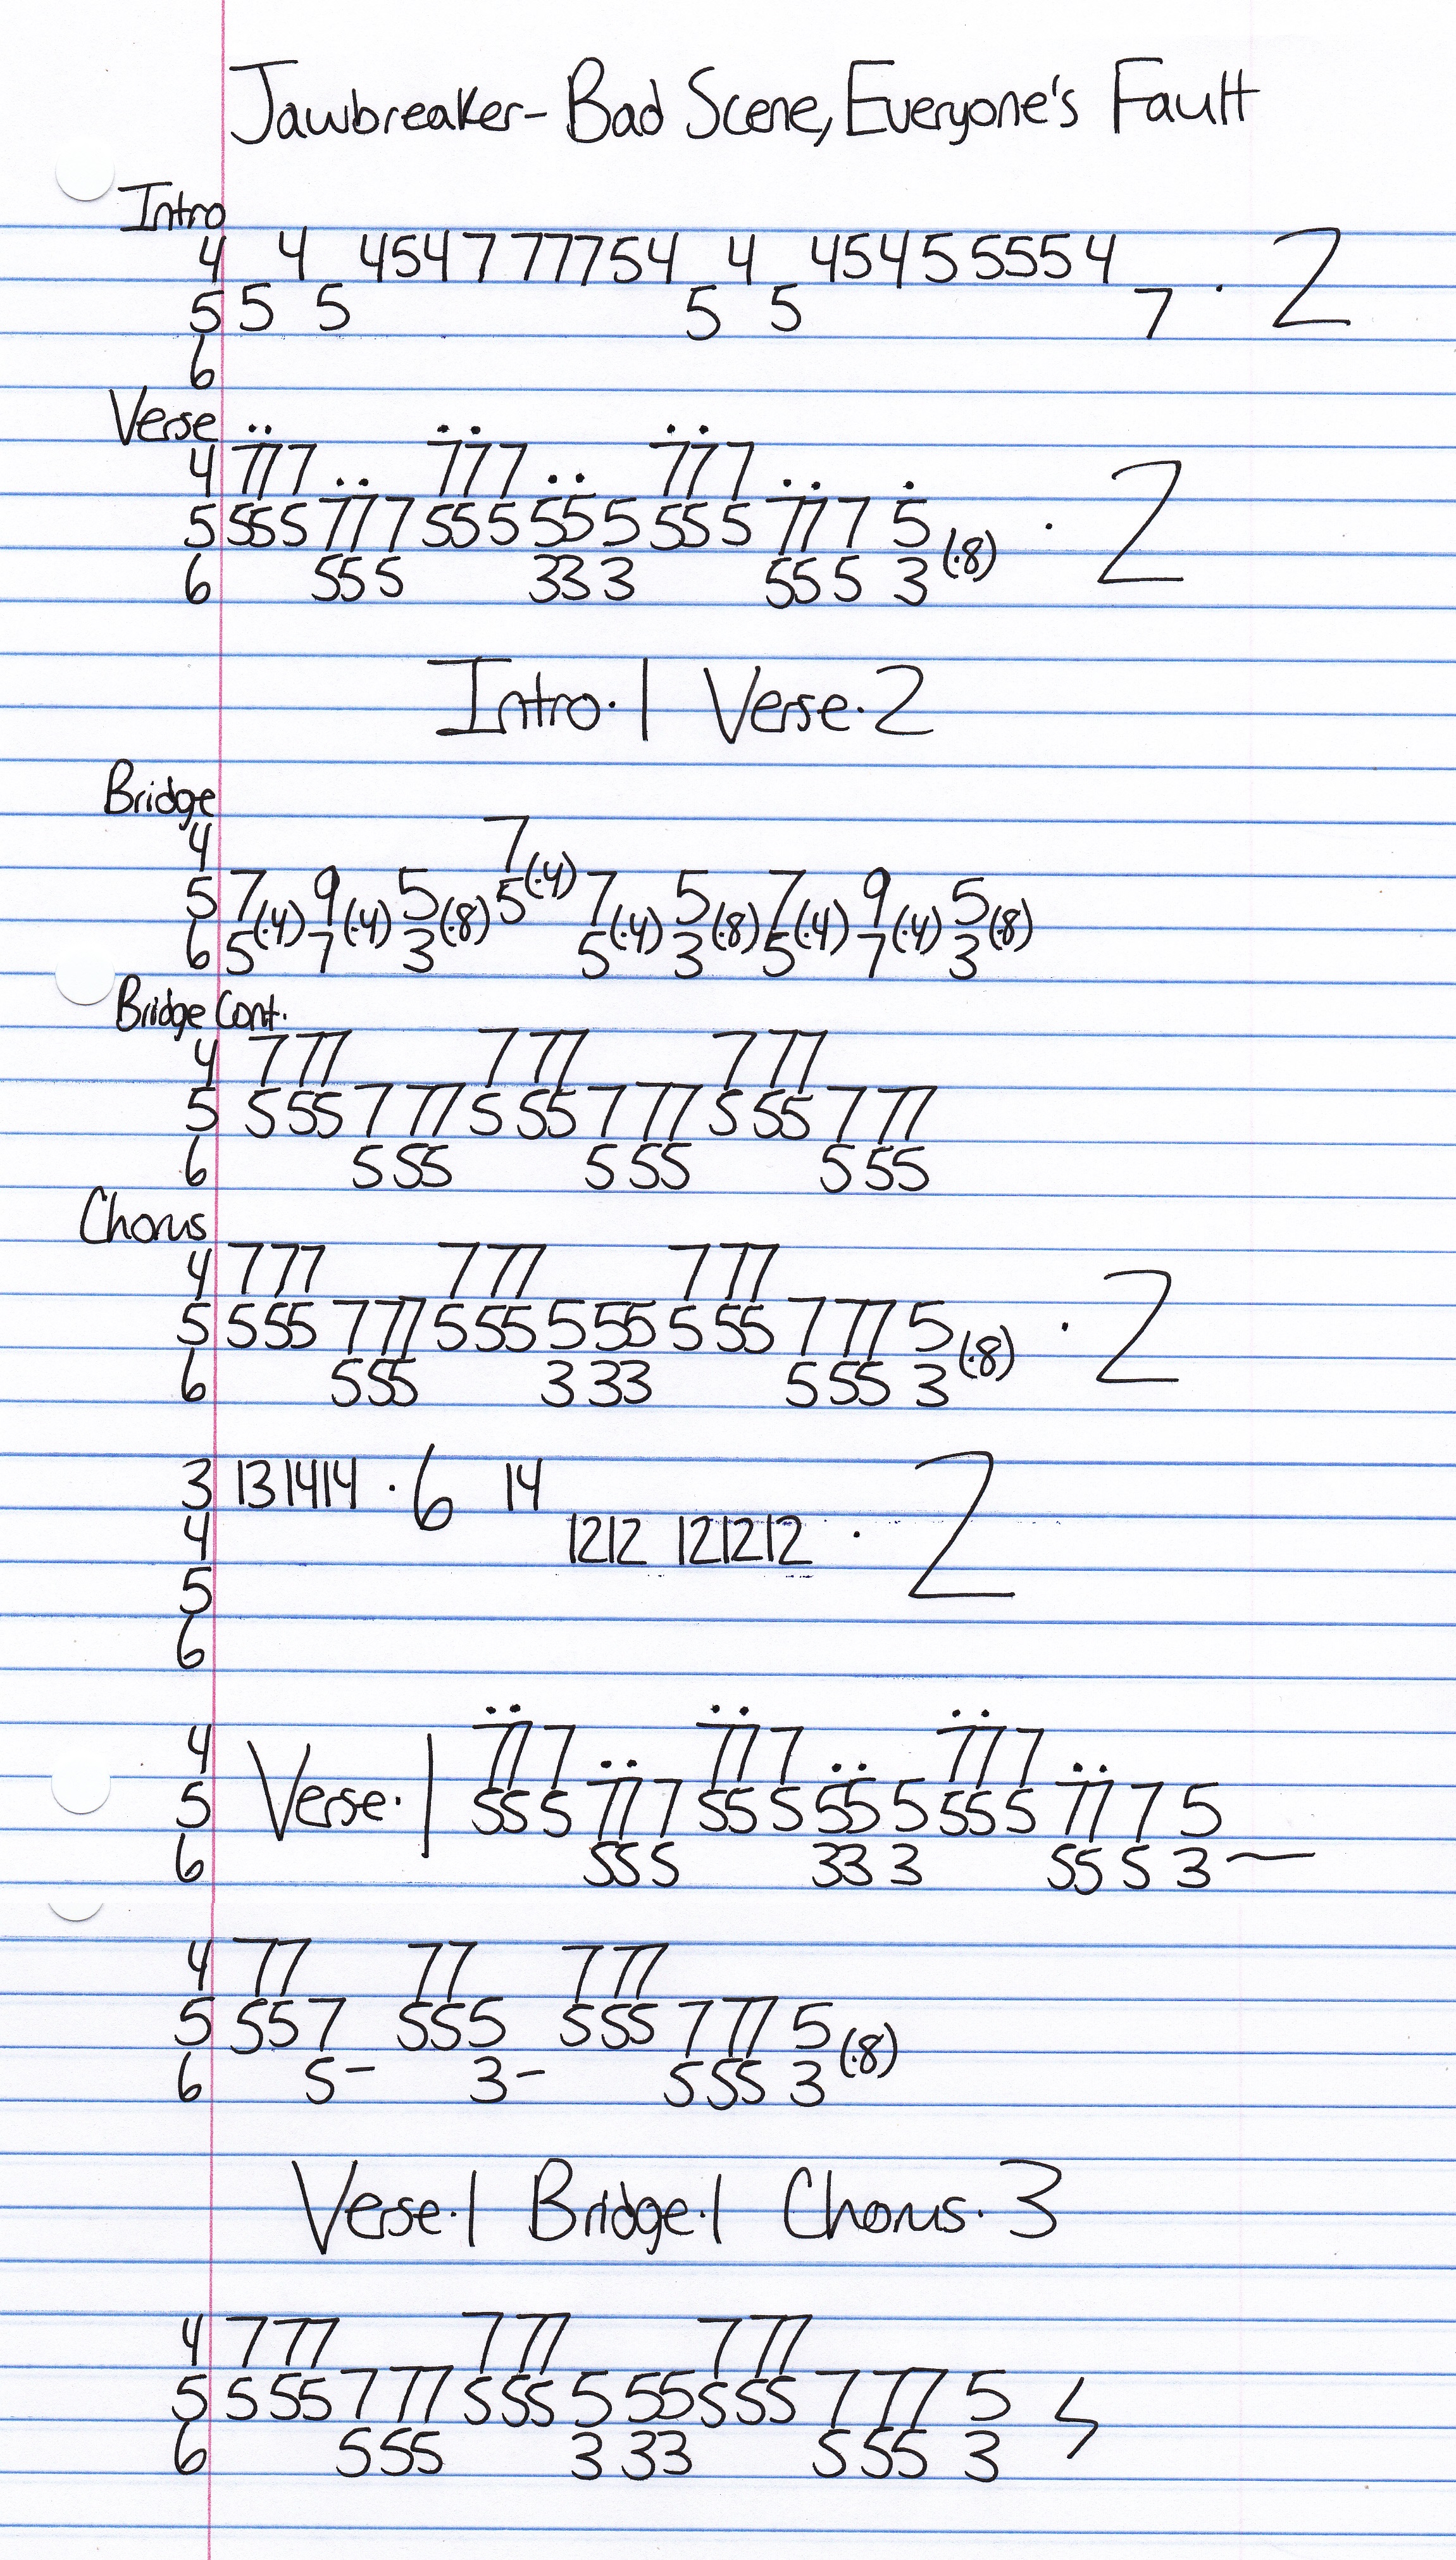 Jawbreaker- Bad Scene, Everyone's Fault
Intro
4 4 454 7 777 54 4 454 5 5554
5 5 5 5 5 7 · 2
6
Verse
4 777 777 777
5 555 777 555 555 555 777 5 · 2
6 555 333 555 3 (·8)
Intro·1 Verse·2
Bridge
4 7
5 7(·4) 9(·4) 5(·8) 5(·4) 7(·4) 5(·8) 7(·4) 9(·4) 5(·8)
6 5 7 3 5 3 5 7 3
Bridge Cont.
4 7 77 7 77 7 77
5 5 55 7 77 5 55 7 77 5 55 7 77
6 5 55 5 55 5 55
Chorus
4 777 7 77 7 77
5 555 777 5 55 5 55 5 55 7 77 5 (·8) · 2
6 555 3 33 5 55 3
3 13 14 14 · 6 14
4 12 12 12 12 12 · 2
5
6
4 777 777 777
5 Verse·1 555 777 555 555 555 777 5
6 555 333 555 3 —
4 77 77 7 77
5 55 7 55 5 5 55 7 77 5 (·8)
6 5 - 3 - 5 55 3
Verse·1 Bridge·1 Chorus·3
4 7 77 7 77 7 77
5 5 55 7 77 5 55 5 55 5 55 7 77 5
6 5 55 3 33 5 55 3